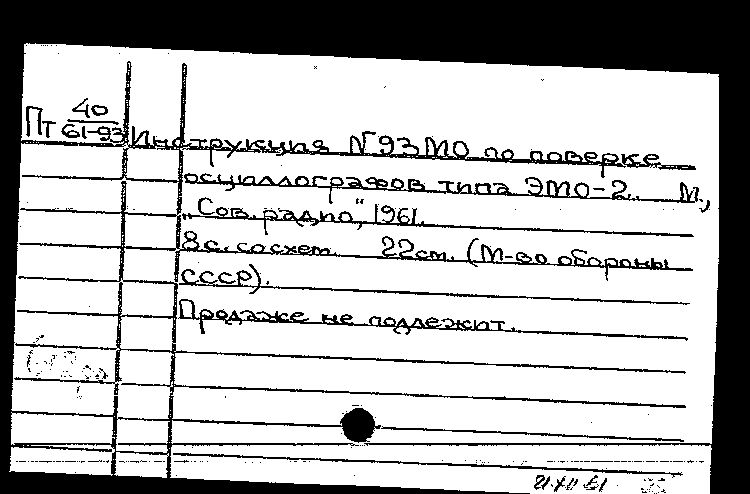 Пт 40
61-93 Инструкция №93МО по поверке
осциллографов типа ЭМО-2. М.,
„Сов. радио", 1961.
8с. со схем. 22см. (М-во обороны
СССР).
Продаже не подлежит.
21.XII 61